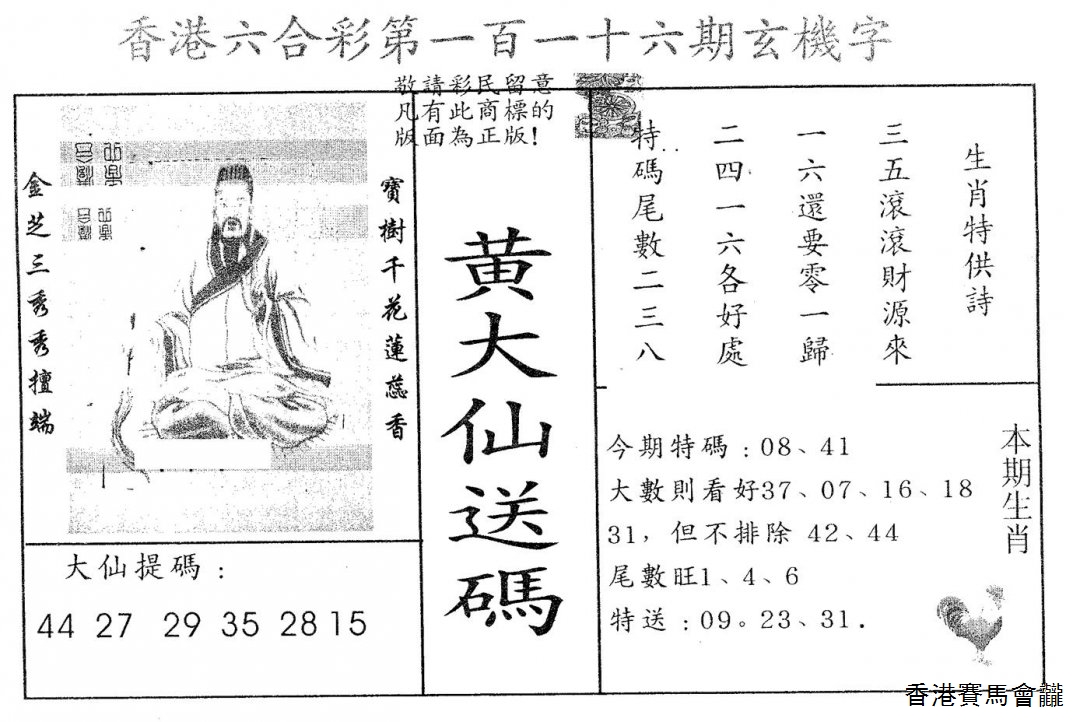 香港六合彩第一百一十六期玄機字
敬請彩民留意
凡有此商標的
版面為正版!
生肖特供詩
三五滾滾財源來
一六還要零一歸
二四一六各好處
特碼尾數二三八
寶樹千花蓮蕊香
金芝三秀秀擅端
黃大仙送碼
大仙提碼:
44 27 29 35 28 15
今期特碼:08、41
大數則看好37、07、16、18
31，但不排除 42、44
尾數旺1、4、6
特送:09。23、31.
本期生肖
香港賽馬會